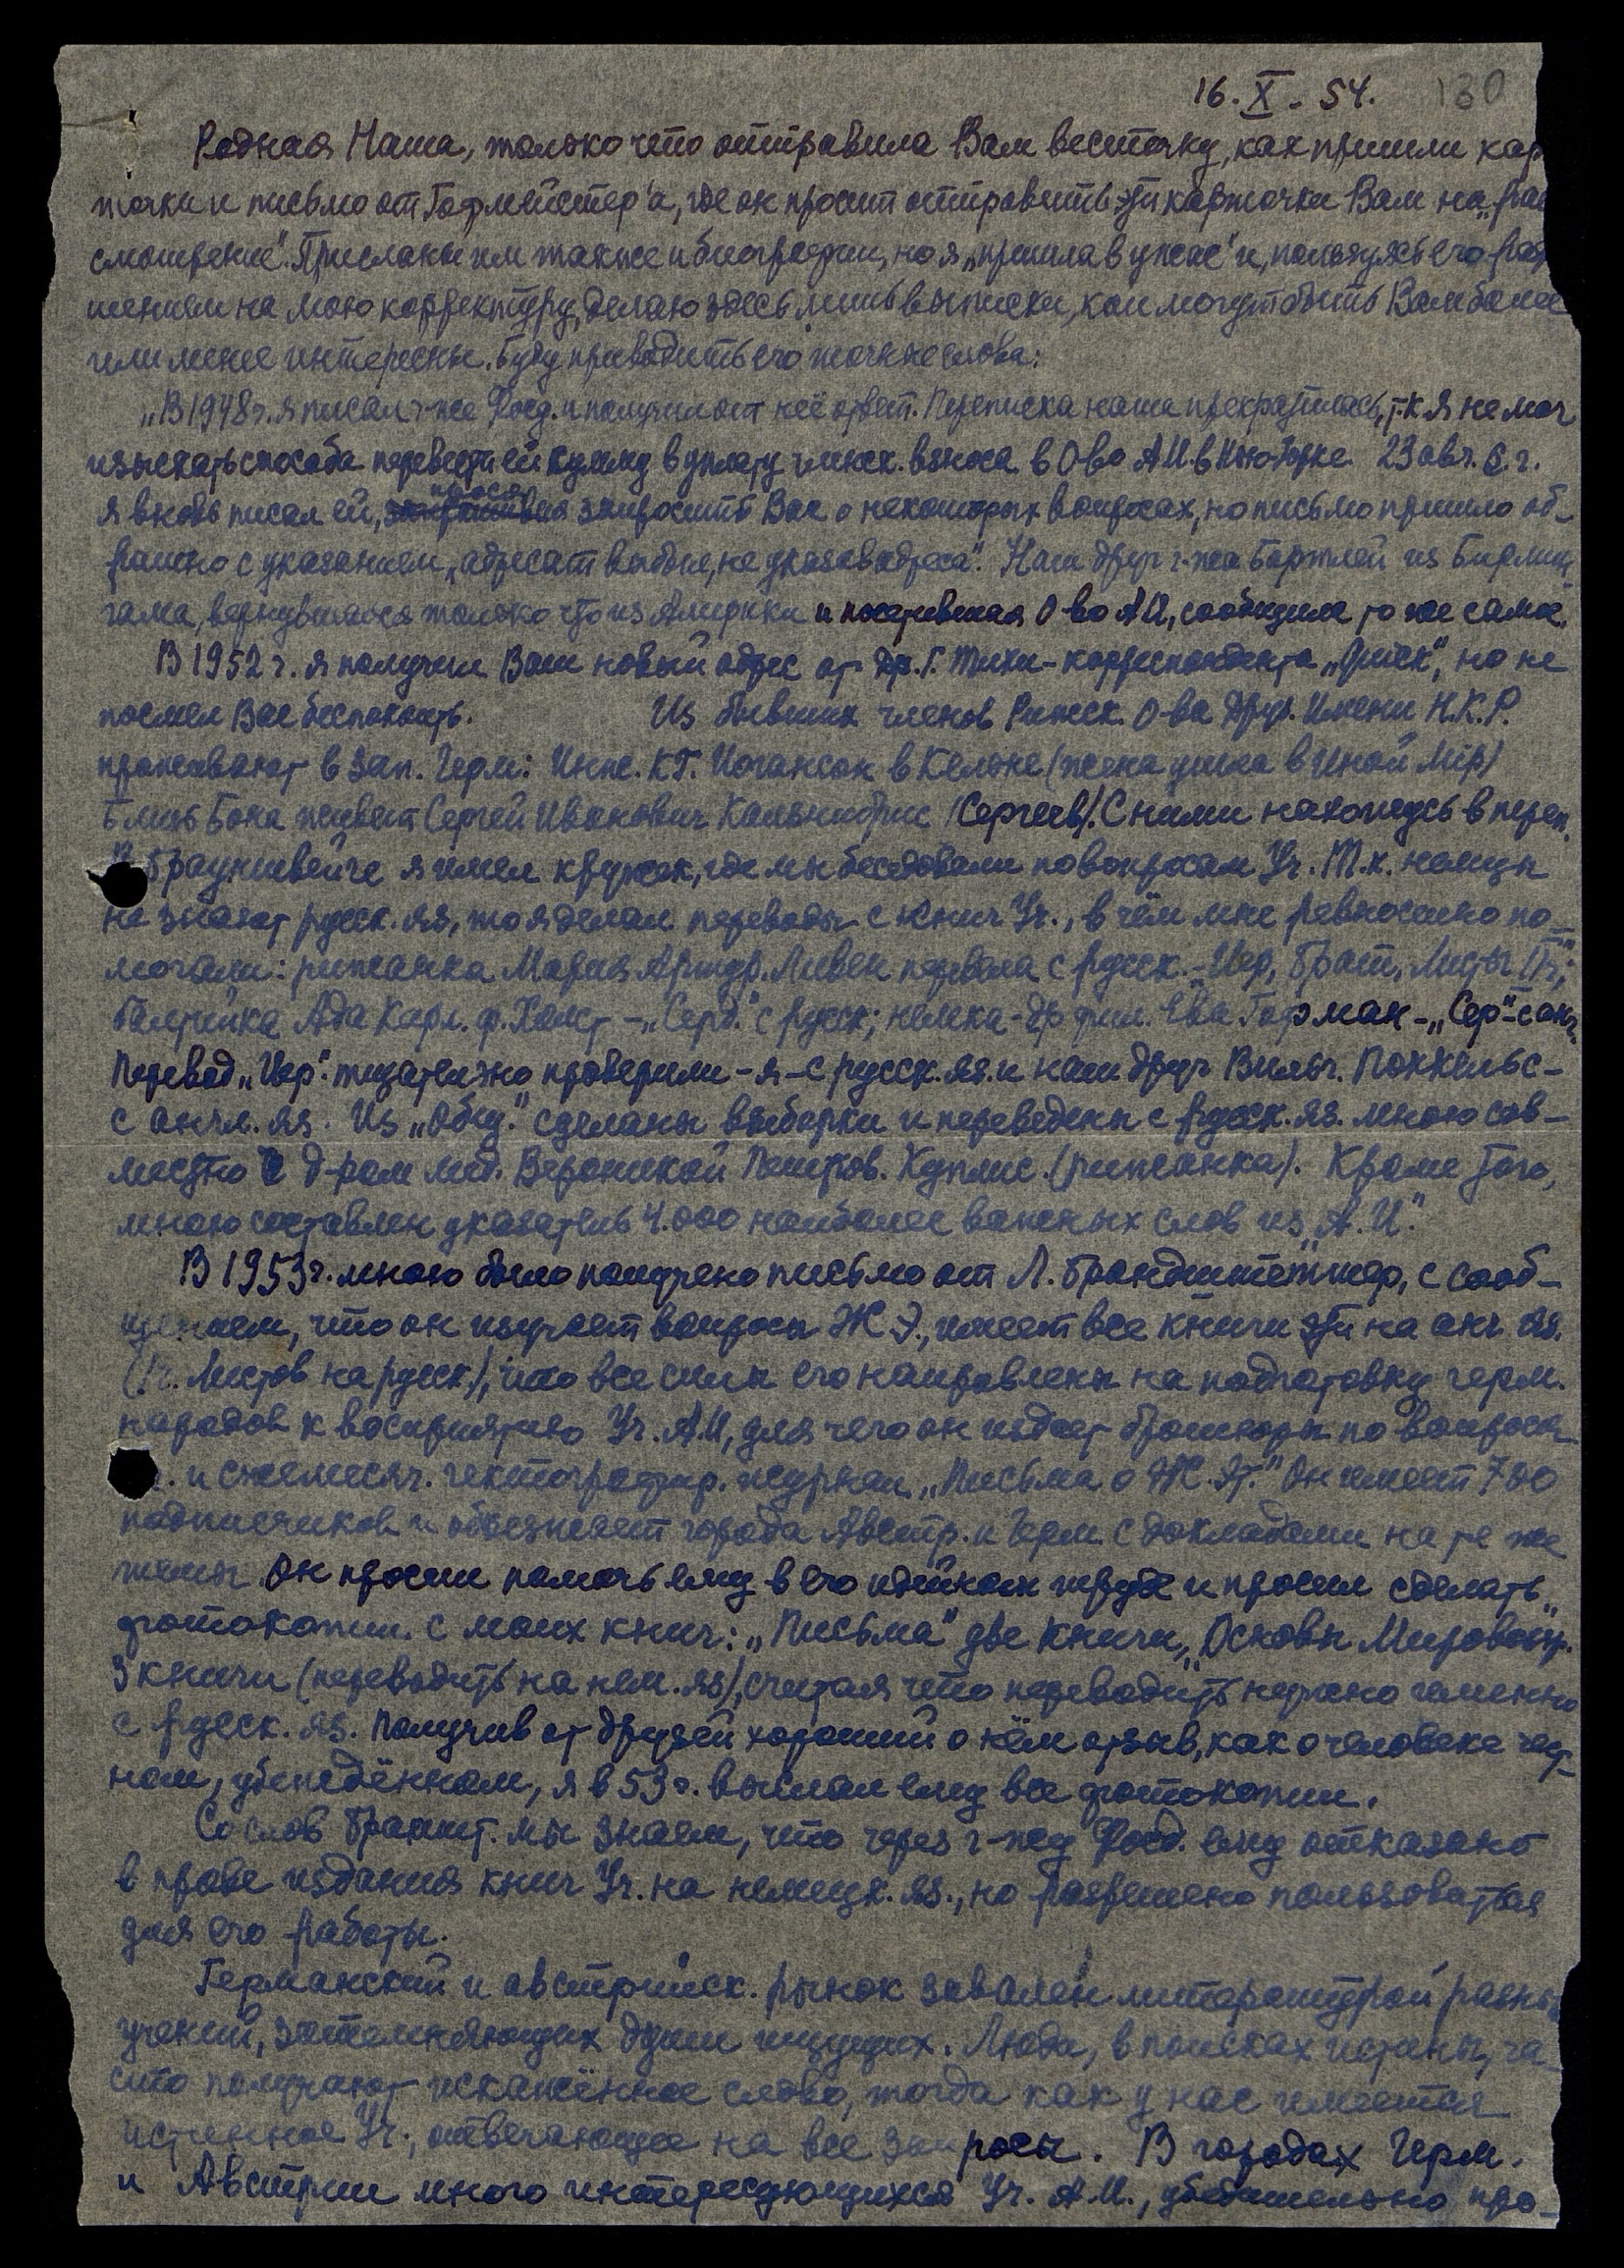 16. X - 54. 130
Родная Наша, только что отправила Вам весточку, как пришли кар
точки и письмо от Гофмейстер'а, где он просит отправить эти карточки Вам на „рас
смотрение". Присланы им также и биографии, но я „пришла в ужас" и, пользуясь его раз
шением на мою корректуру, делаю здесь лишь выписки, кои могут быть Вам более
или менее интересны. Буду приводить его точные слова:
„В 1948 г. я писал г-же Фосд. и получил от неё ответ. Переписка наша прекратилась, т.к я не мог
изыскать способа перевести ей сумму в уплату членск. взноса в О-во А.И. в Нью-Йорке. 23 авг. с. г.
я вновь писал ей, прося запросить Вас о некоторых вопросах, но письмо пришло об-
ратно с указанием „адресат выбыл, не указав адреса". Наш друг г-жа Бартлей из Бирмин
гама, вернувшаяся только что из Америки и посетившая О-во АИ, сообщила то же самое.
В 1952 г. я получил Ваш новый адрес от др. Г. - корреспондента но не
посмел Вас беспокоить. Из бывших членов Рижск. О-ва Друз. Имени Н.К.Р.
проживают в Зап. Герм: Инж. К.Г. Иогансон в Кельне (жена ушла в Иной Мiр)
Близь Бона живет Сергей Иванович (Сергеев). С ними нахожусь в переп.
В Брауншвейге я имел кружок, где мы беседовали по вопросам Уч. Т.к. немцы
не знают русск. яз, то я делал переводы с книг Уч., в чём мне ревностно по-
могали: рижанка Мария Артур. Ливен перевела с русск. - „Иер, Брат, Листы I";
балтийка Ада Карл. ф. - „Серд." с русск; немка - др фил. Ева Гофман - „Сер" - с англ
Перевод „Иер". тщательно проверили - я - с русск. яз. и наш друг Вильг. Поккельс -
с англ. яз. Из „Общ." сделаны выборки и переведены с русск. яз. мною сов-
местно с д-ром мед. Вероникой Петров. (рижанка). Кроме того,
мною составлен указатель 4.000 наиболее важных слов из „А.И."
В 1953 г. мною было получено письмо от Л. Брандштеттер, с сооб-
щением, что он изучает вопросы Ж Э., имеет все книги эти на анг. яз.
(1 ч. Листов на русск.), что все силы его направлены на подготовку герм.
народов к восприятию Уч. А.И, для чего он издает брошюры по вопросам
и ежемесяч. гектографир. журнал „Письма о Ж. Эт." Он имеет 700
подписчиков и объезжает города Австр. и Герм. с докладами на те же
темы. Он просил помочь ему в его идейном труде и просил сделать
фотокопии с моих книг: „Письма" две книги, „Основы Мировоззр."
3 книги (переводить на нем. яз), считая что переводить нужно именно
с русск. яз. Получив от друзей хороший о нём отзыв, как о человеке чест-
ном, убеждённом, я в 53 г. выслал ему все фотокопии.
Со слов Брандт. мы знаем, что через г-жу Фосд. ему отказано
в праве издания книг Уч. на немецк. яз., но разрешено пользоваться
для его работы.
Германский и австрийск. рынок завален литературой разных
учений, затемняющих души ищущих. Люди, в поисках истины, ча-
сто получают искажённое слово, тогда как у нас имеется
истинное Уч., отвечающее на все запросы. В городах Герм.
и Австрии много интересующихся Уч. А.И., убедительно про-